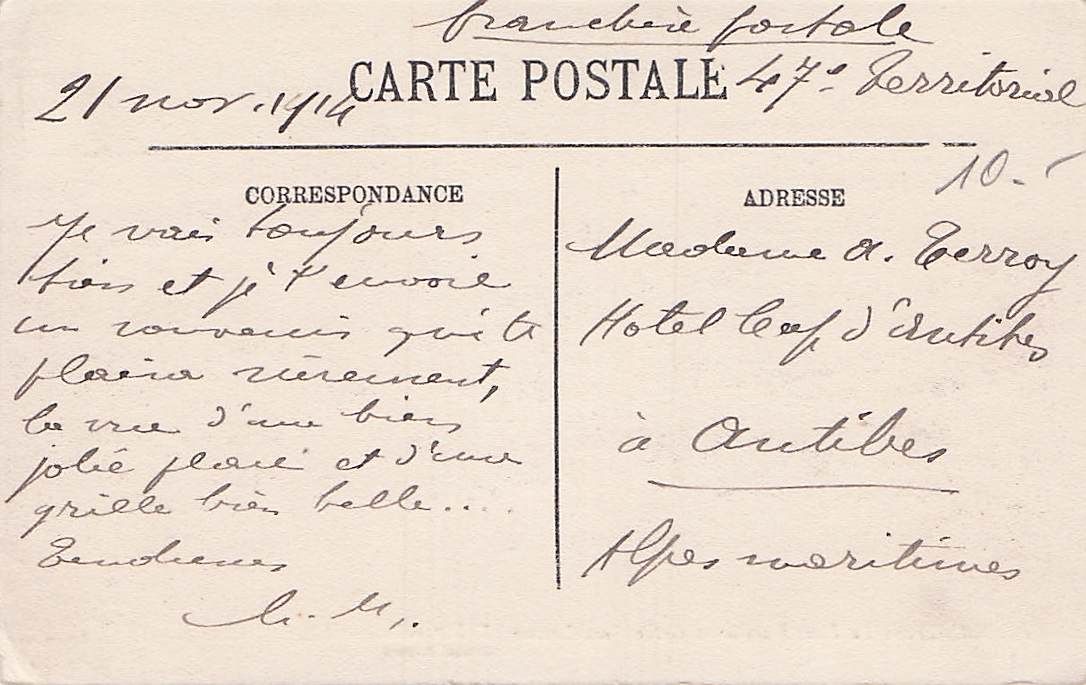 franchise postale
CARTE POSTALE 47e Territorial
21 nov. 1914
10.-
CORRESPONDANCE
Je vais toujours
bien et je t'envoie
un souvenir qui te
plaira sûrement,
la vue d'une bien
jolie place et d'une
grille bien belle....
Tendresses
ADRESSE
Madame A. Terroy
Hotel Cap d'Antibes
à Antibes
Alpes maritimes